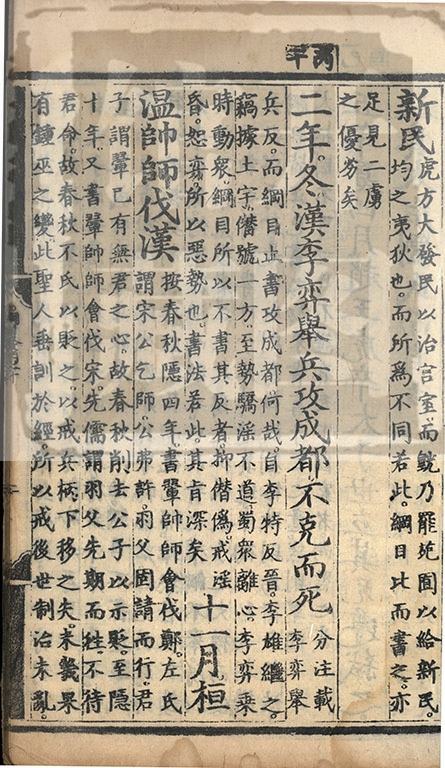 丙午
新民虎方大發民以治宫室而皝乃罷苑囿以給新民。
均之夷狄也。而所爲不同若此。綱目比而書之。亦
足見二虜
之優劣矣
二年。冬。漢李弈舉兵攻成都。不克而死分注載
李弈舉
兵反。而綱目止書攻成都何哉。自李特反晉。李雄繼之。
竊據土宇。僭號一方。至勢驕淫不道。蜀衆離心。李弈乘
時動衆。綱目所以不書其反者。抑僭僞。戒淫
昏。恕弈。所以惡勢也。書法若此。其肯深矣
十一月。桓
温帥師伐漢按春秋隱四年。書翬帥師會伐鄭。左氏
謂宋公乞師。公弗許。羽父固請而行。君
子謂翬已有無君之心。故春秋削去公子以示貶。至隱
十年又書翬帥師會伐宋。先儒謂羽父先期而往。不待
君命。故春秋不氏以貶之。以戒兵柄下移之失。未幾果
有鍾巫之變。此聖人垂訓於經。所以戒後世制治未亂。